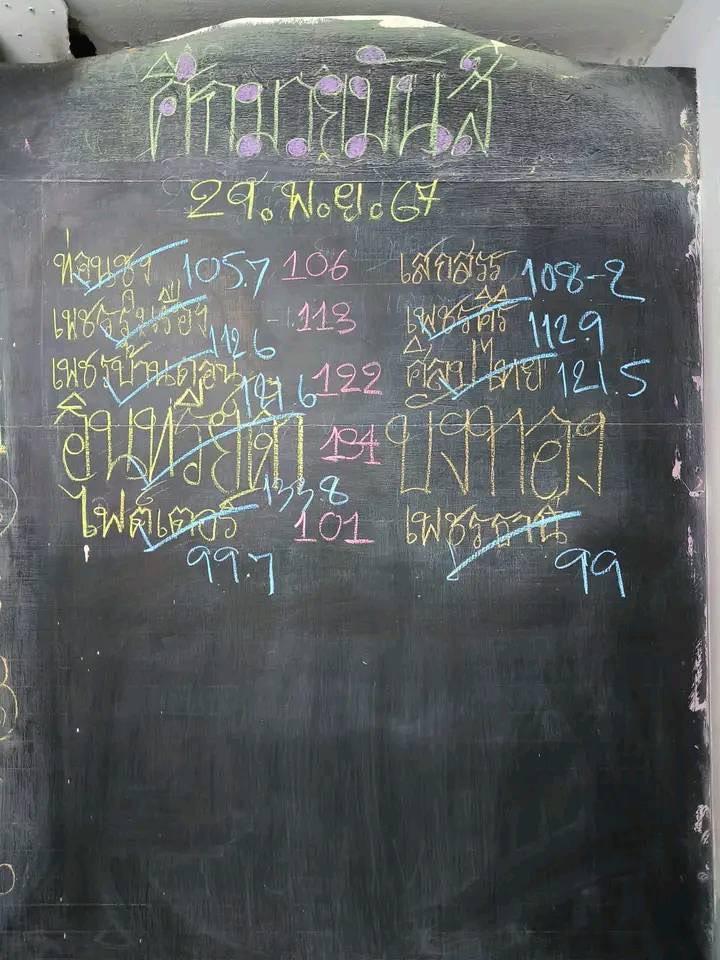 ศึกมวยมันส์
29.พ.ย.67
ท่อนซุง 105.7 106 เสกสรร 108-2
เพชรรุ่งเรือง 112.6 113 เพชรศิริ 112.9
เพชรบ้านดอน 121.6 122 ศิลาไทย 121.5
อินทรีย์ดำ 133.8 134 บังทอง
ไฟต์เตอร์ 99.7 101 เพชรธานี 99